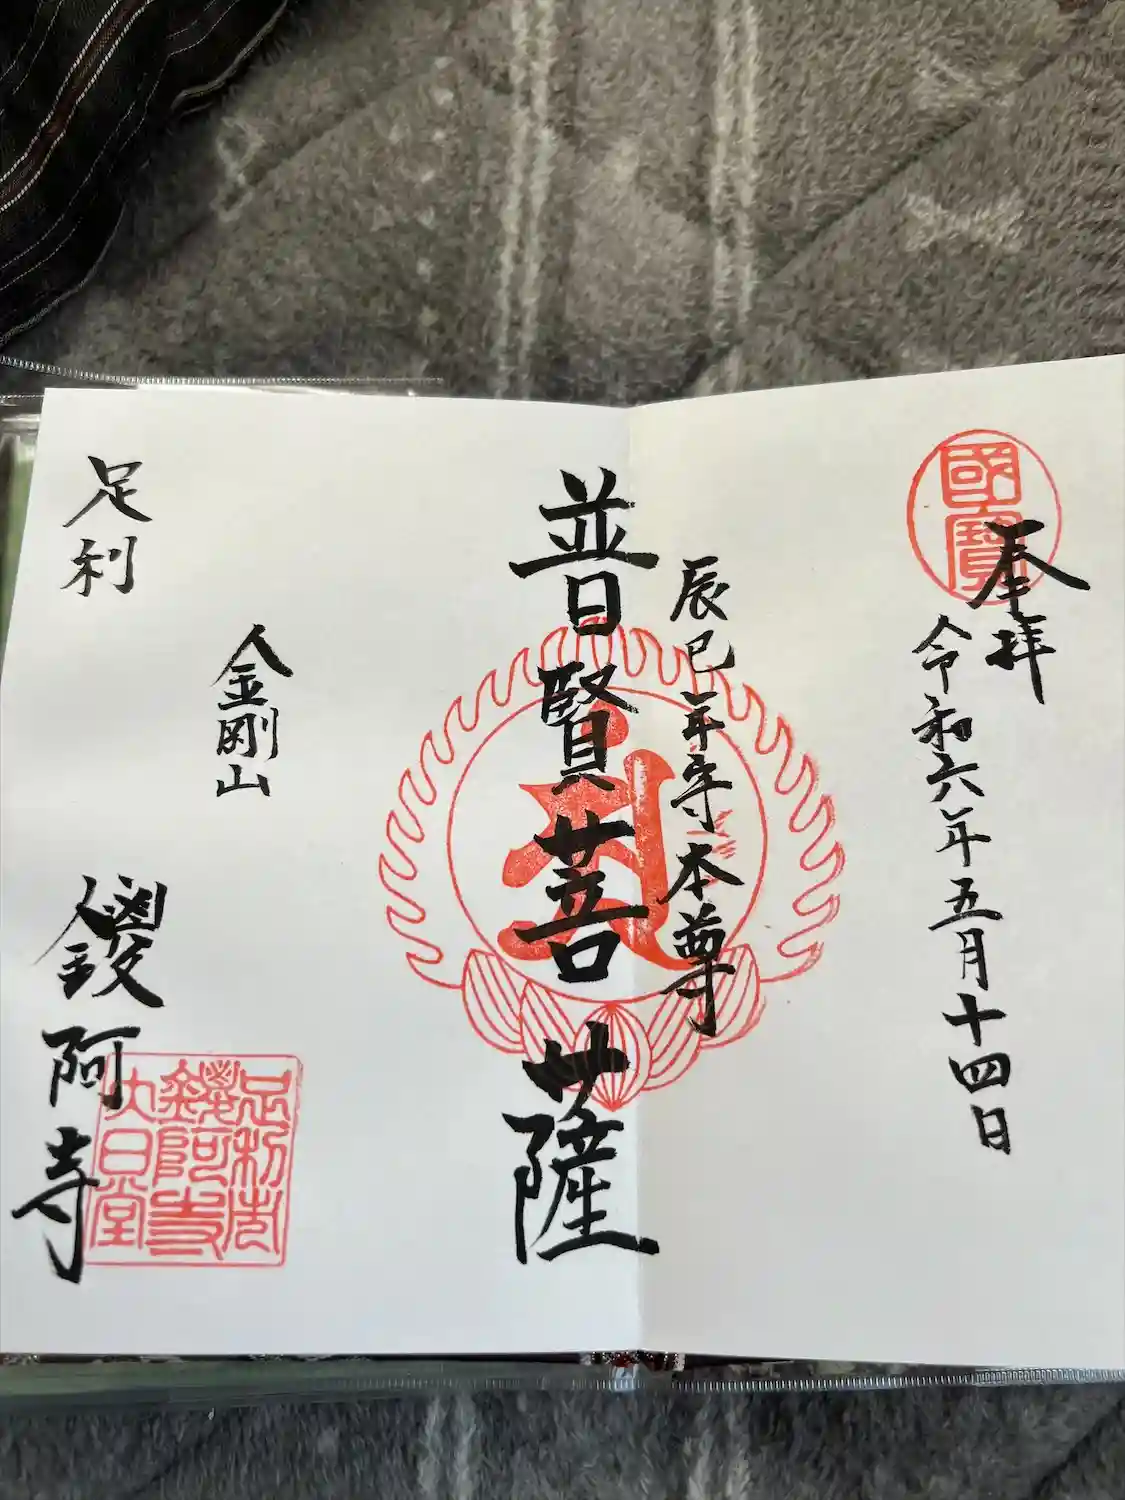 奉拝
國寶
令和六年五月十四日
辰巳年守本尊
普賢菩薩
金剛山
足利
鑁阿寺
足利市
鑁阿寺
大日堂